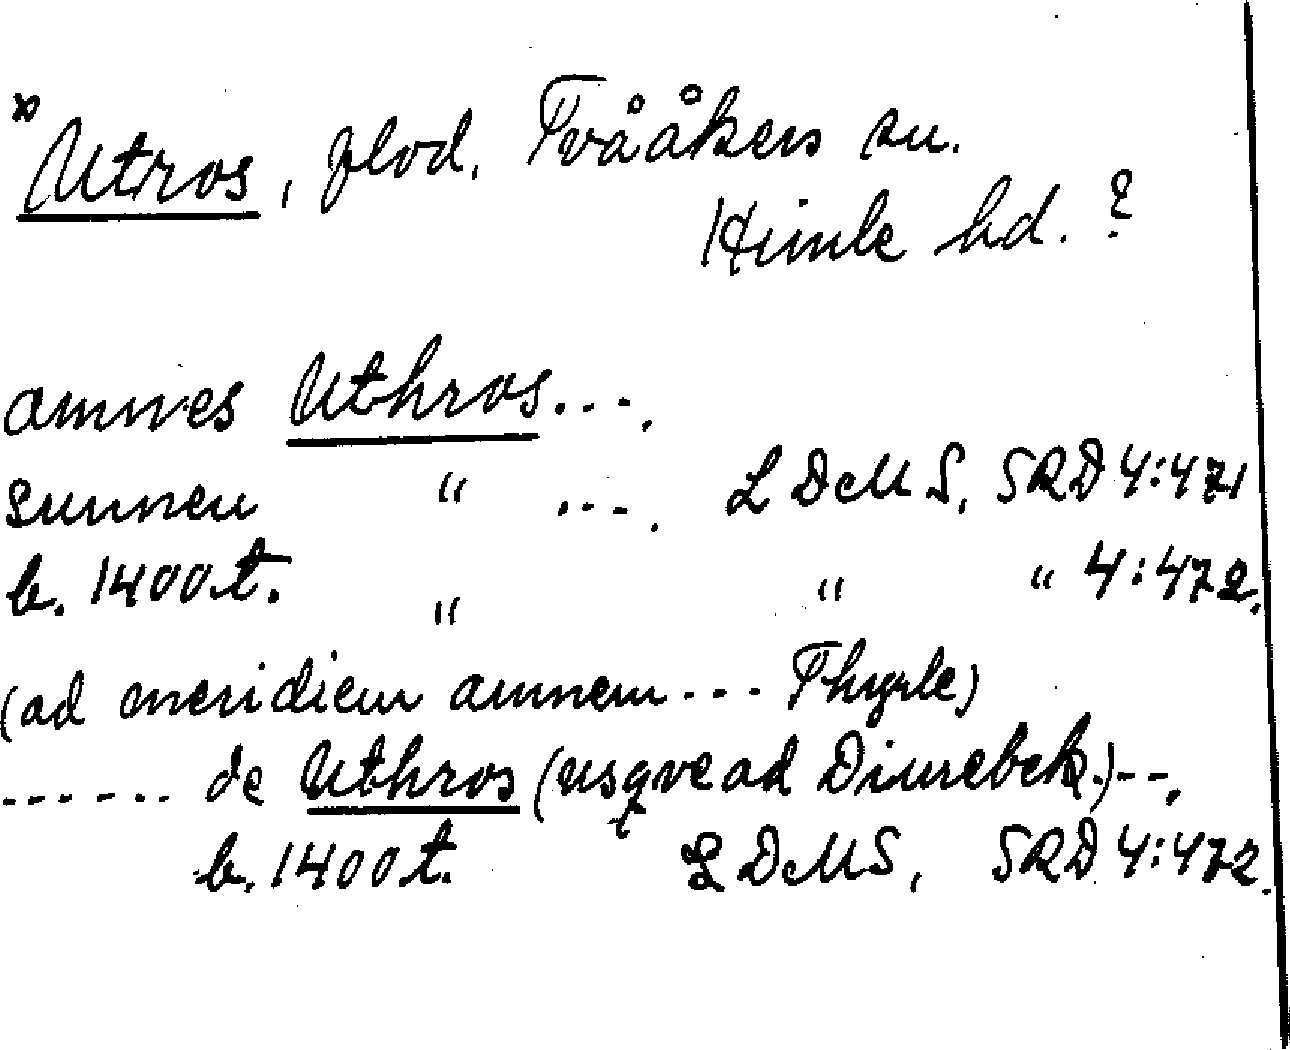 *Utros, flod, Tvååkers sn.
Himle hd. ?
amnes Uthros ... .
sunnen " ... . L D M S, SRD 4:471
b. 1400 t. " " " 4:472.
(ad meridiem amnem --- Thyrle)
------ de Uthros (usqve ad Diurebek.)--.
b. 1400 t. L D M S, SRD 4:472.